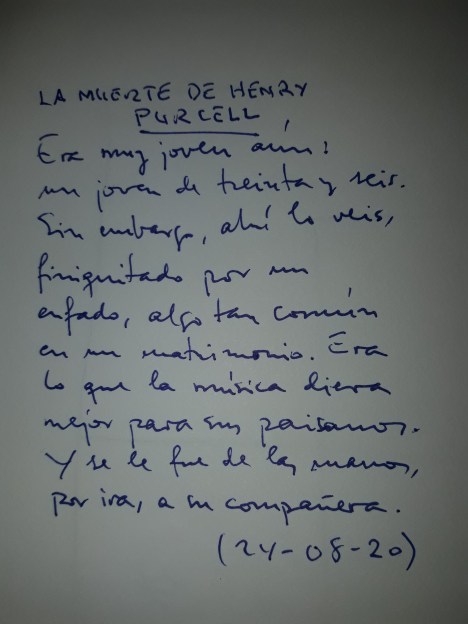 LA MUERTE DE HENRY
PURCELL
Era muy joven aún:
un joven de treinta y seis.
Sin embargo, ahí lo veis,
finiquitado por un
enfado, algo tan común
en un matrimonio. Era
lo que la música diera
mejor para sus paisanos.
Y se le fue de las manos,
por ira, a su compañera.
(24-08-20)